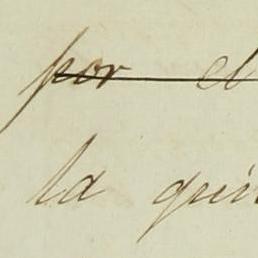 por el
la qui